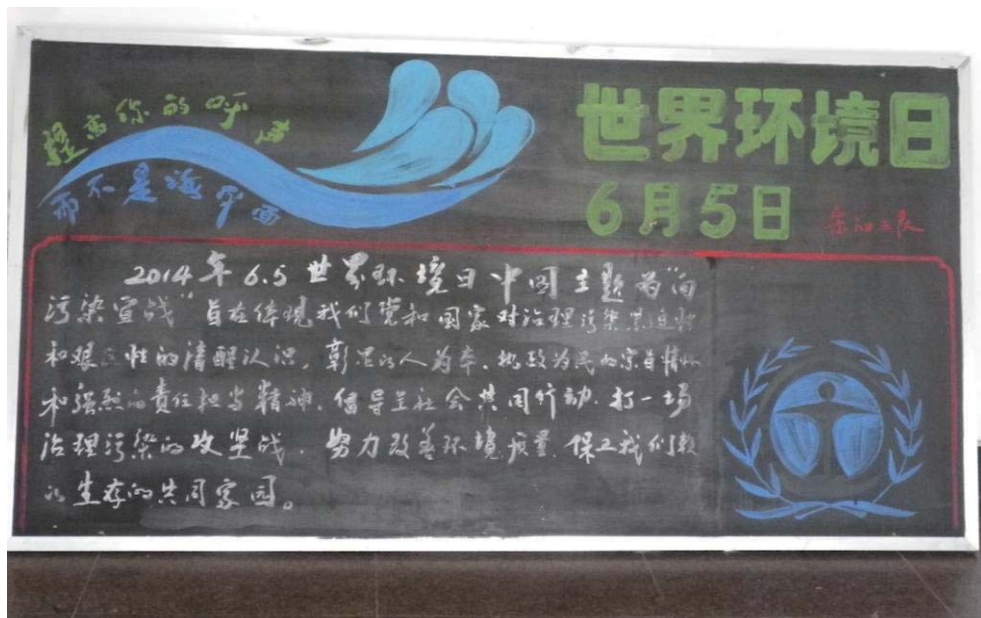 提高你的呼声
而不是海平面
世界环境日
6月5日
2014年6.5世界环境日中国主题为"向
污染宣战"旨在体现我们党和国家对治理污染紧迫性
和艰巨性的清醒认识,彰显以人为本、执政为民的宗旨情怀
和强烈的责任担当精神.倡导全社会共同行动.打一场
治理污染的攻坚战.努力改善环境质量.保卫我们赖
以生存的共同家园。